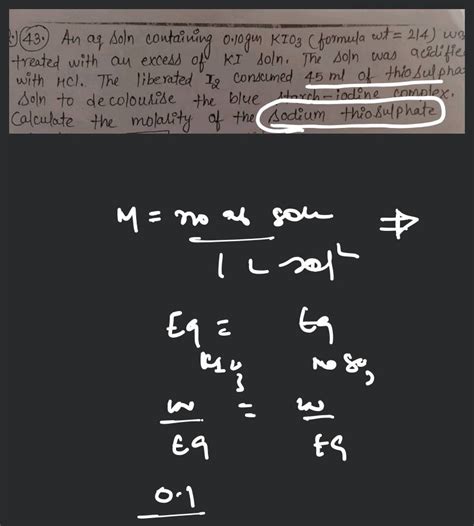 43. An aq soln containing 0.10gm KIO3 (formula wt = 214) was
treated with an excess of KI soln. The soln was acidifie
with HCl. The liberated I2 consumed 45 ml of thiosulpha
soln to decolourise the blue starch-iodine complex.
Calculate the molality of the sodium thiosulphate
M = no of solu ⇒
1 L sol
Eq = Eq
KIO3
w = w
Eq Eq
0.1